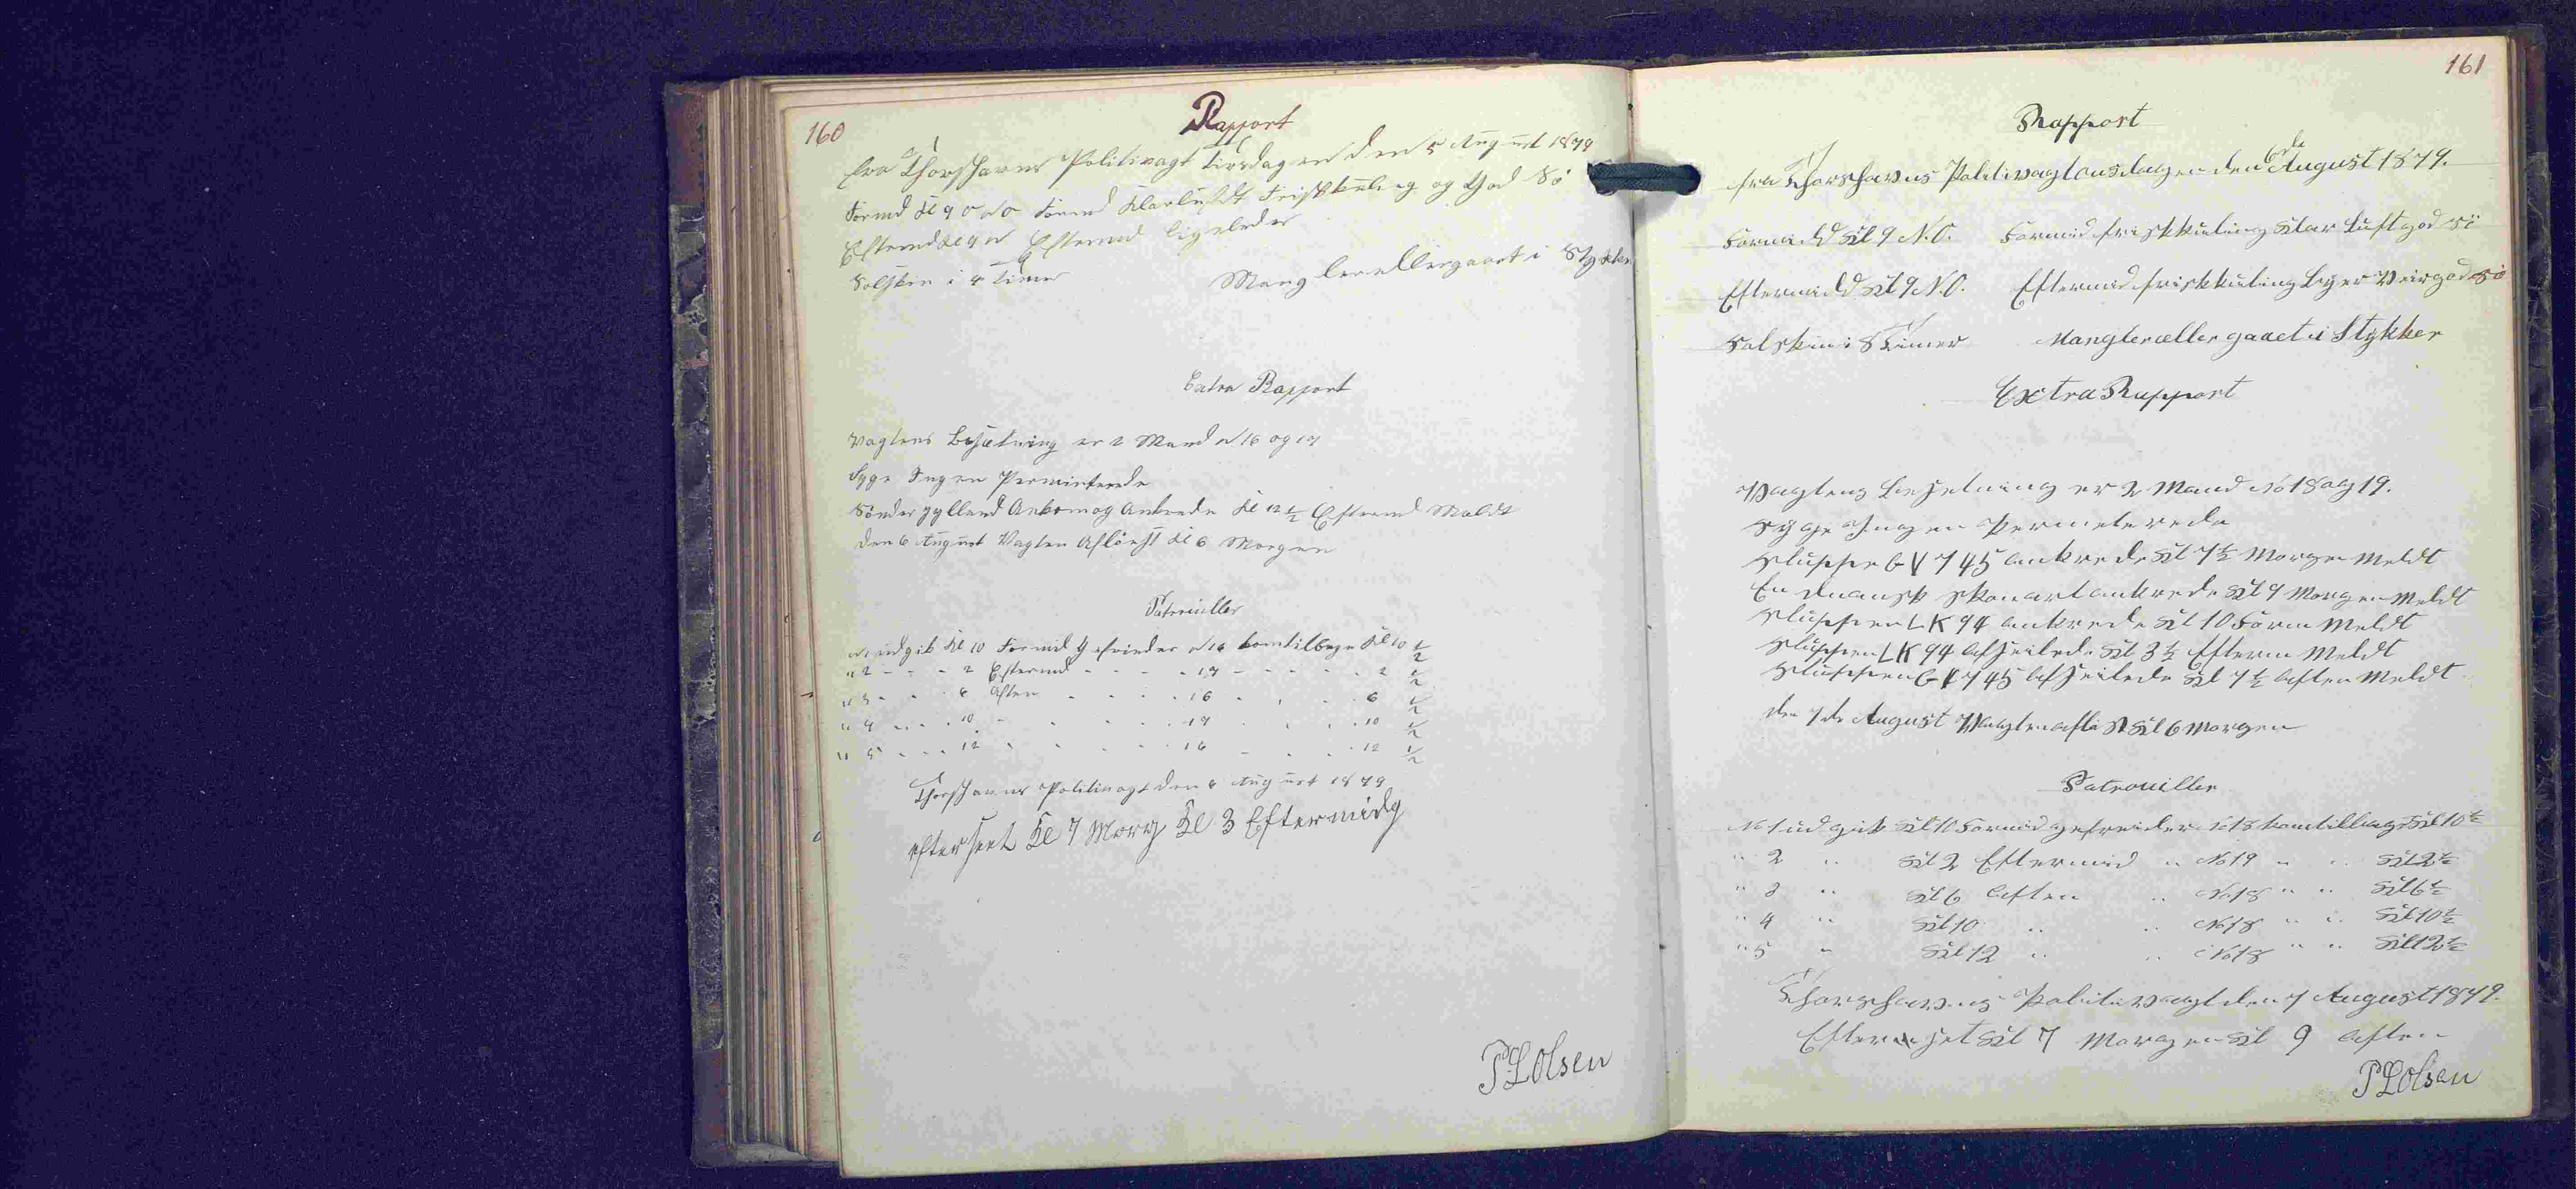 160
Rapport
fra Thorshavns Politivagt Tirsdagen den 5 August 1879
Formd Kl 9 O N O Formd Klarluft Friskkuling og God Sö
Eftermd Kl 9 N Eftermd ligeledes
Solskin i 4 Timer Mangler ellergaaet i Stykker
Extra Rapport
Vagtens Besætning er 2 Mand N 16 og 17
Syge Ingen Permiterede
Sönder jylland Ankom og Ankrede Kl 12 1/2 Eftermd Meldt
den 6 August Vagten Aflöst Kl 6 Morgen
Patrouiller
N 1 udgik Kl 10 Formid Gefreider N 16 kom tilbage Kl 10 1/2
" 2 - - - 2 Eftermd - - - - 17 - - - - 2 1/2
" 3 - - - 6 Aften - - - - 16 - - - - 6 1/2
" 4 - - - 10 - - - - 17 - - - - 10 1/2
" 5 - - - 12 - - - - 16 - - - - 12 1/2
Thorshavns Politivagt den 6 August 1879
efterseet Kl 7 Morg Kl 3 Eftermidg
P L Olsen
161
Rapport
fra Thorshavns Politivagt onsdagen den 6de August 1879.
Formidd Kl 9 N.O. Formid friskkuling Klar Luft god Sö
Eftermidd Kl 9 N.O. Eftermid friskkuling Veir god Sö
Solskin i 8 Timer Mangler eller gaaet i Stykker
Extra Rapport
Vagtens Besetning er 2 Mand No 18 og 19.
Syge Ingen Permeterede
Sluppe GV 745 ankrede Kl 7 1/2 Morgen Meldt
En Skonart ankrede Kl 9 Morgen Meldt
Sluppen LK 94 ankrede Kl 10 Form Meldt
Sluppen LK 94 afseilede Kl 3 1/2 Efterm Meldt
Sluppen GV 745 afseilede Kl 7 1/2 Aften Meldt
den 7de August Vagten Kl 6 Morgen
Patrouiller
No 1 udgik Kl 10 Formid gefreider No 18 kom tilbage Kl 10 1/2
" 2 " Kl 2 Eftermid " No 19 " " Kl 2 1/2
" 3 " Kl 6 Aften " No 18 " " Kl 6 1/2
" 4 " Kl 10 " " No 18 " " Kl 10 1/2
" 5 " Kl 12 " " No 18 " " Kl 12 1/2
Thorshavns Politivagt den 7 August 1879.
Efterset Kl 7 Morgen Kl 9 Aften
P L Olsen